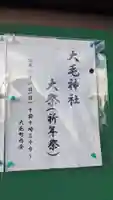 大毛神社
大祭(祈年祭)
午前十時三十分〜
大毛町内会